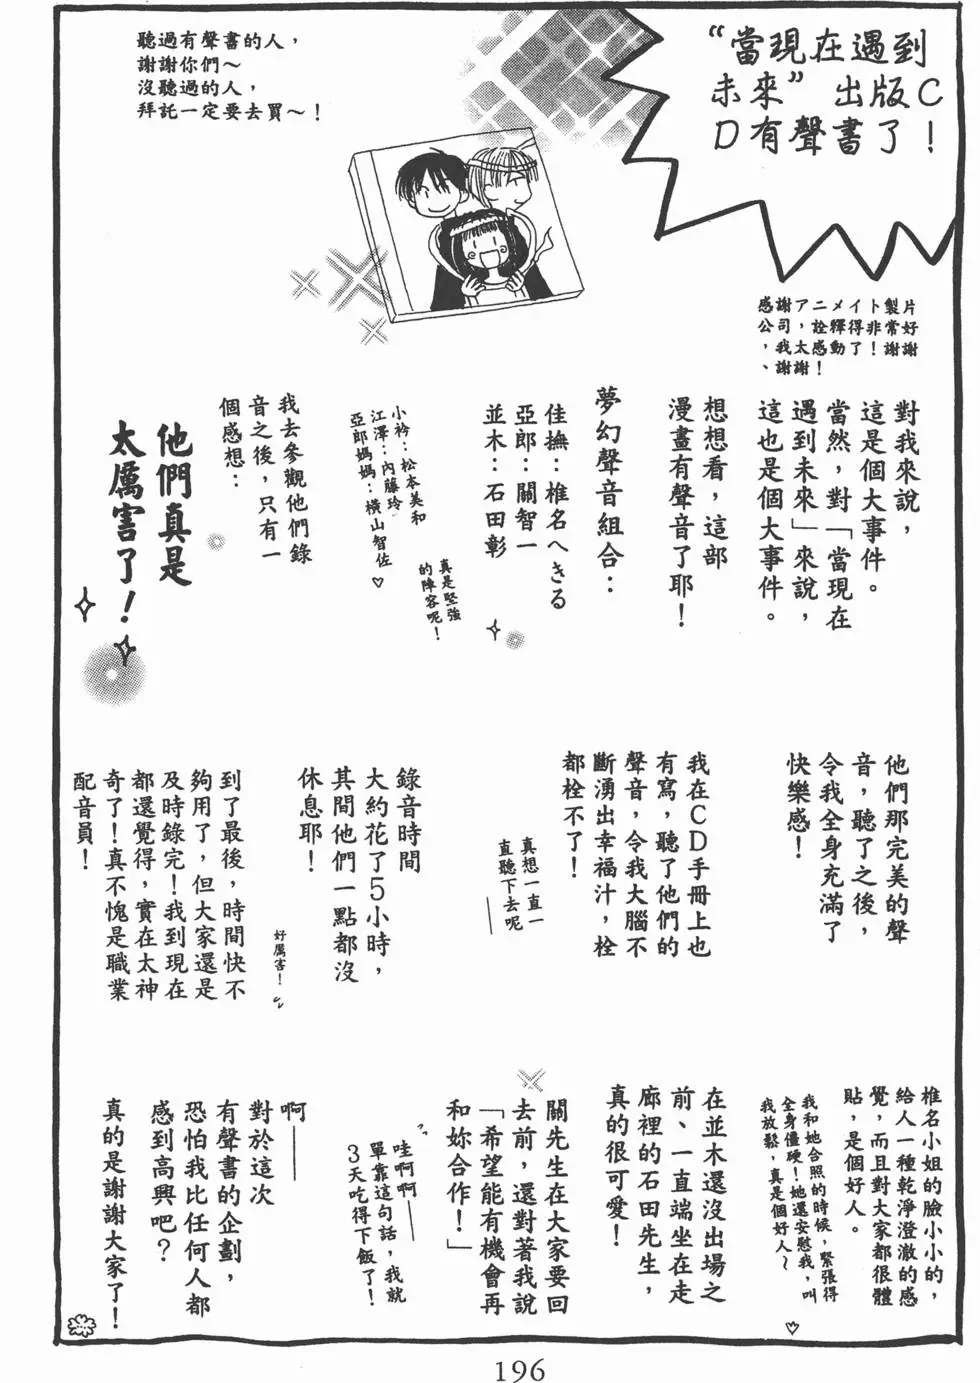 “當現在遇到
未來” 出版C
D有聲書了！
聽過有聲書的人，
謝謝你們～
沒聽過的人，
拜託一定要去買～！
感謝アニメイト製片
公司，詮釋得非常好
，我太感動了！謝謝
、謝謝！
對我來說，
這是個大事件。
當然，對「當現在
遇到未來」來說，
這也是個大事件。
想想看，這部
漫畫有聲音了耶！
夢幻聲音組合：
佳撫：椎名へきる
亞郎：關智一
並木：石田彰
小衿：松本美和
江澤：內藤玲
亞郎媽媽：橫山智佐♡
真是堅強
的陣容呢！
我去參觀他們錄
音之後，只有一
個感想：
他們真是
太厲害了！
他們那完美的聲
音，聽了之後，
令我全身充滿了
快樂感！
我在CD手冊上也
有寫，聽了他們的
聲音，令我大腦不
斷湧出幸福汁，栓
都栓不了！
真想一直一
直聽下去呢──
錄音時間
大約花了5小時，
其間他們一點都沒
休息耶！
好厲害！
到了最後，時間快不
夠用了，但大家還是
及時錄完！我到現在
都還覺得，實在太神
奇了！真不愧是職業
配音員！
椎名小姐的臉小小的，
給人一種乾淨澄澈的感
覺，而且對大家都很體
貼，是個好人。
我和她合照的時候，緊張得
全身僵硬！她還安慰我，叫
我放鬆，真是個好人～♡
在並木還沒出場之
前、一直端坐在走
廊裡的石田先生，
真的很可愛！
關先生在大家要回
去前，還對著我說
「希望能有機會再
和妳合作！」
哇啊啊──
單靠這句話，我就
3天吃得下飯了！
啊──
對於這次
有聲書的企劃，
恐怕我比任何人都
感到高興吧？
真的是謝謝大家了！
196